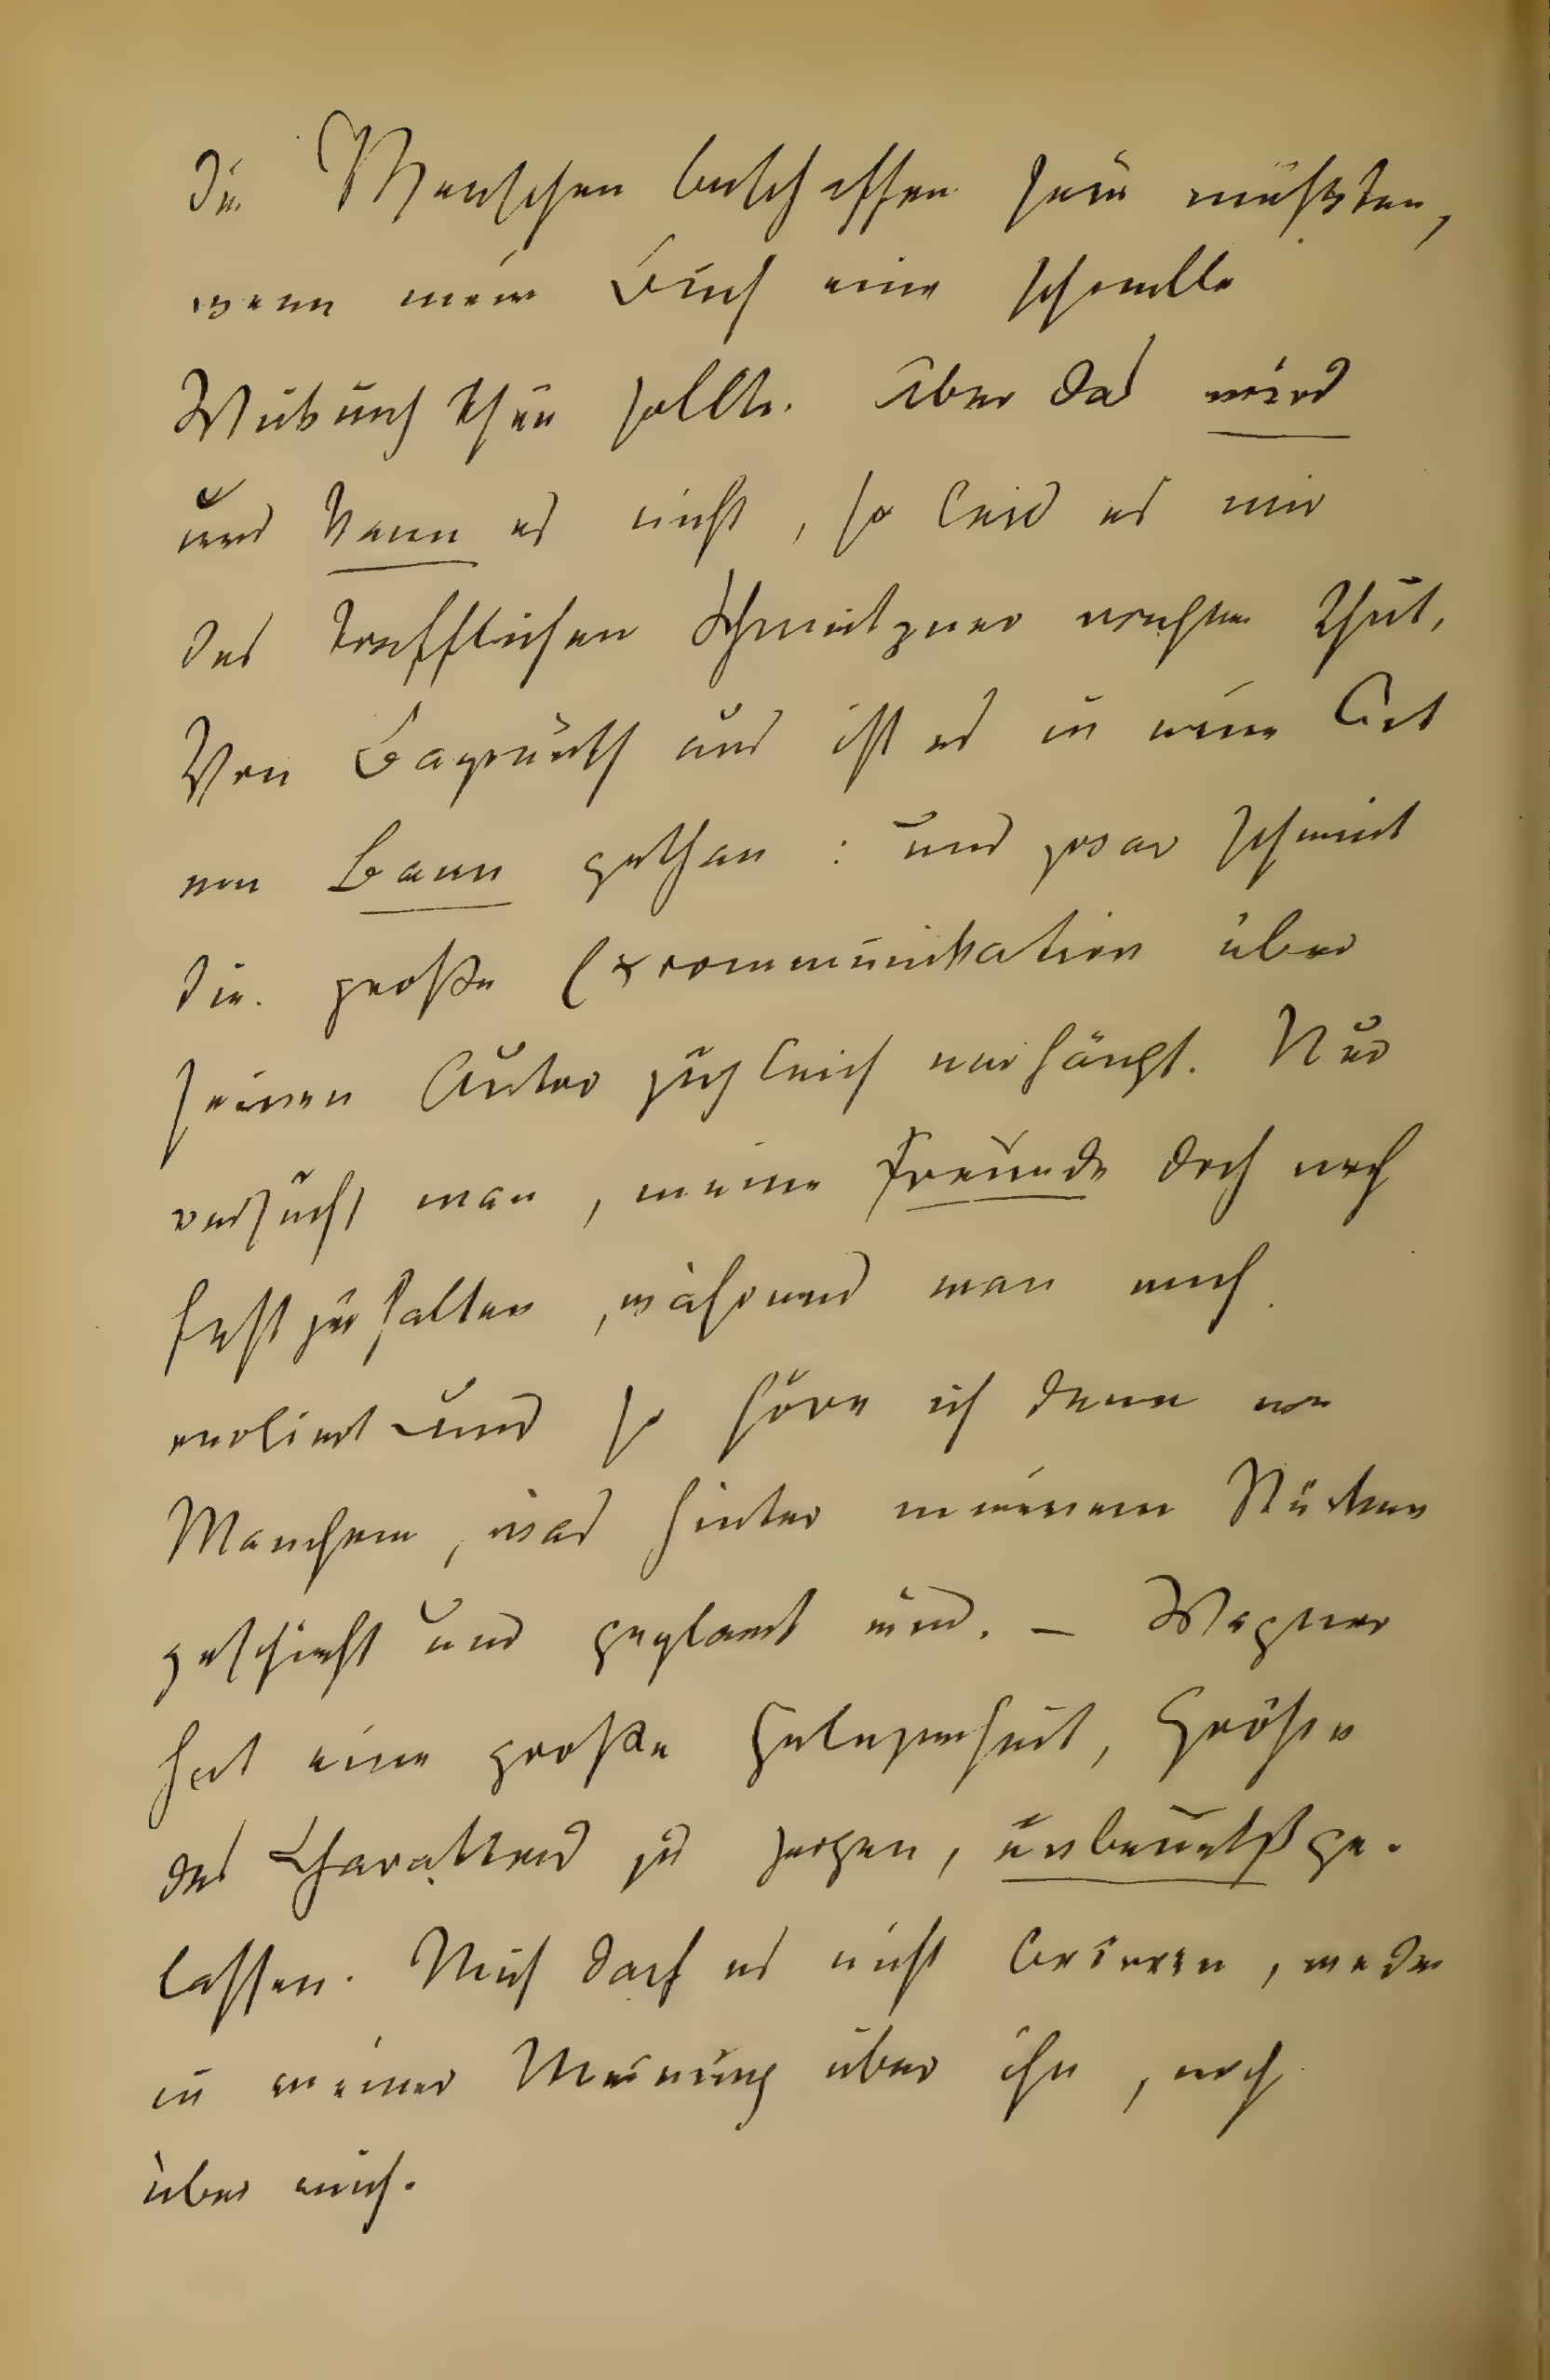 die Menschen beschaffen sein müßten,
wenn mein Buch eine schnelle
Wirkung thun sollte. Aber das wird
und kann es nicht, so leid es mir
des trefflichen Schmeitzner wegen thut.
Von Bayreuth aus ist es in eine Art
von Bann gethan: und zwar scheint
die große Excommunikation über
seinen Autor zugleich verhängt. Nur
versucht man, meine Freunde doch noch
festzuhalten, während man mich
verliert und so höre ich denn von
Manchem, was hinter meinem Rücken
geschieht und geplant wird. – Wagner
hat eine große Gelegenheit, Größe
des Charakters zu zeigen, unbenutzt ge-
lassen. Mich darf es nicht beirren, weder
in meiner Meinung über ihn, noch
über mich.